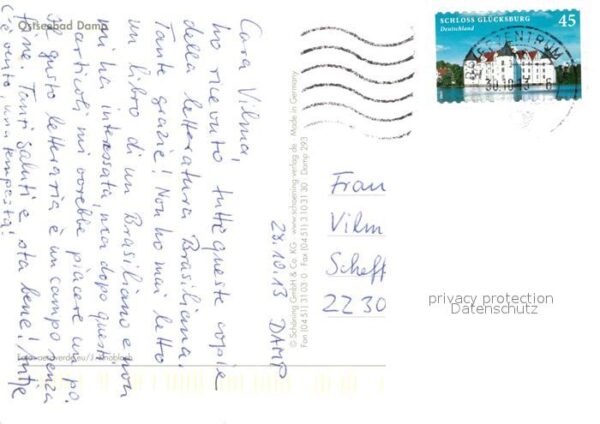 Ostseebad Damp
28.10.13 DAMP
Cara Vilma,
ho ricevuto tutte queste copie
della letteratura Brasiliana.
Tante grazie! Non ho mai letto
un libro di un Brasiliano e non
mi ha interessata, ma dopo questi
articoli mi vorrebbe piacere un po'.
Il gusto letteraria è un campo senza
fine. Tanti saluti e sta bene! Antje
C'è
una tempesta!
Foto: aeroverde.eu/J. Knobloch
© Schöning GmbH & Co. KG · www.schoening-verlag.de Made in Germany
Fon (04 51) 3 10 31 0 Fax (04 51) 3 10 31 30 Damp 293
SCHLOSS GLÜCKSBURG
Deutschland
45
BRIEFZENTRUM
30.10.13
Frau
Vilm
Scheff
2230
privacy protection
Datenschutz